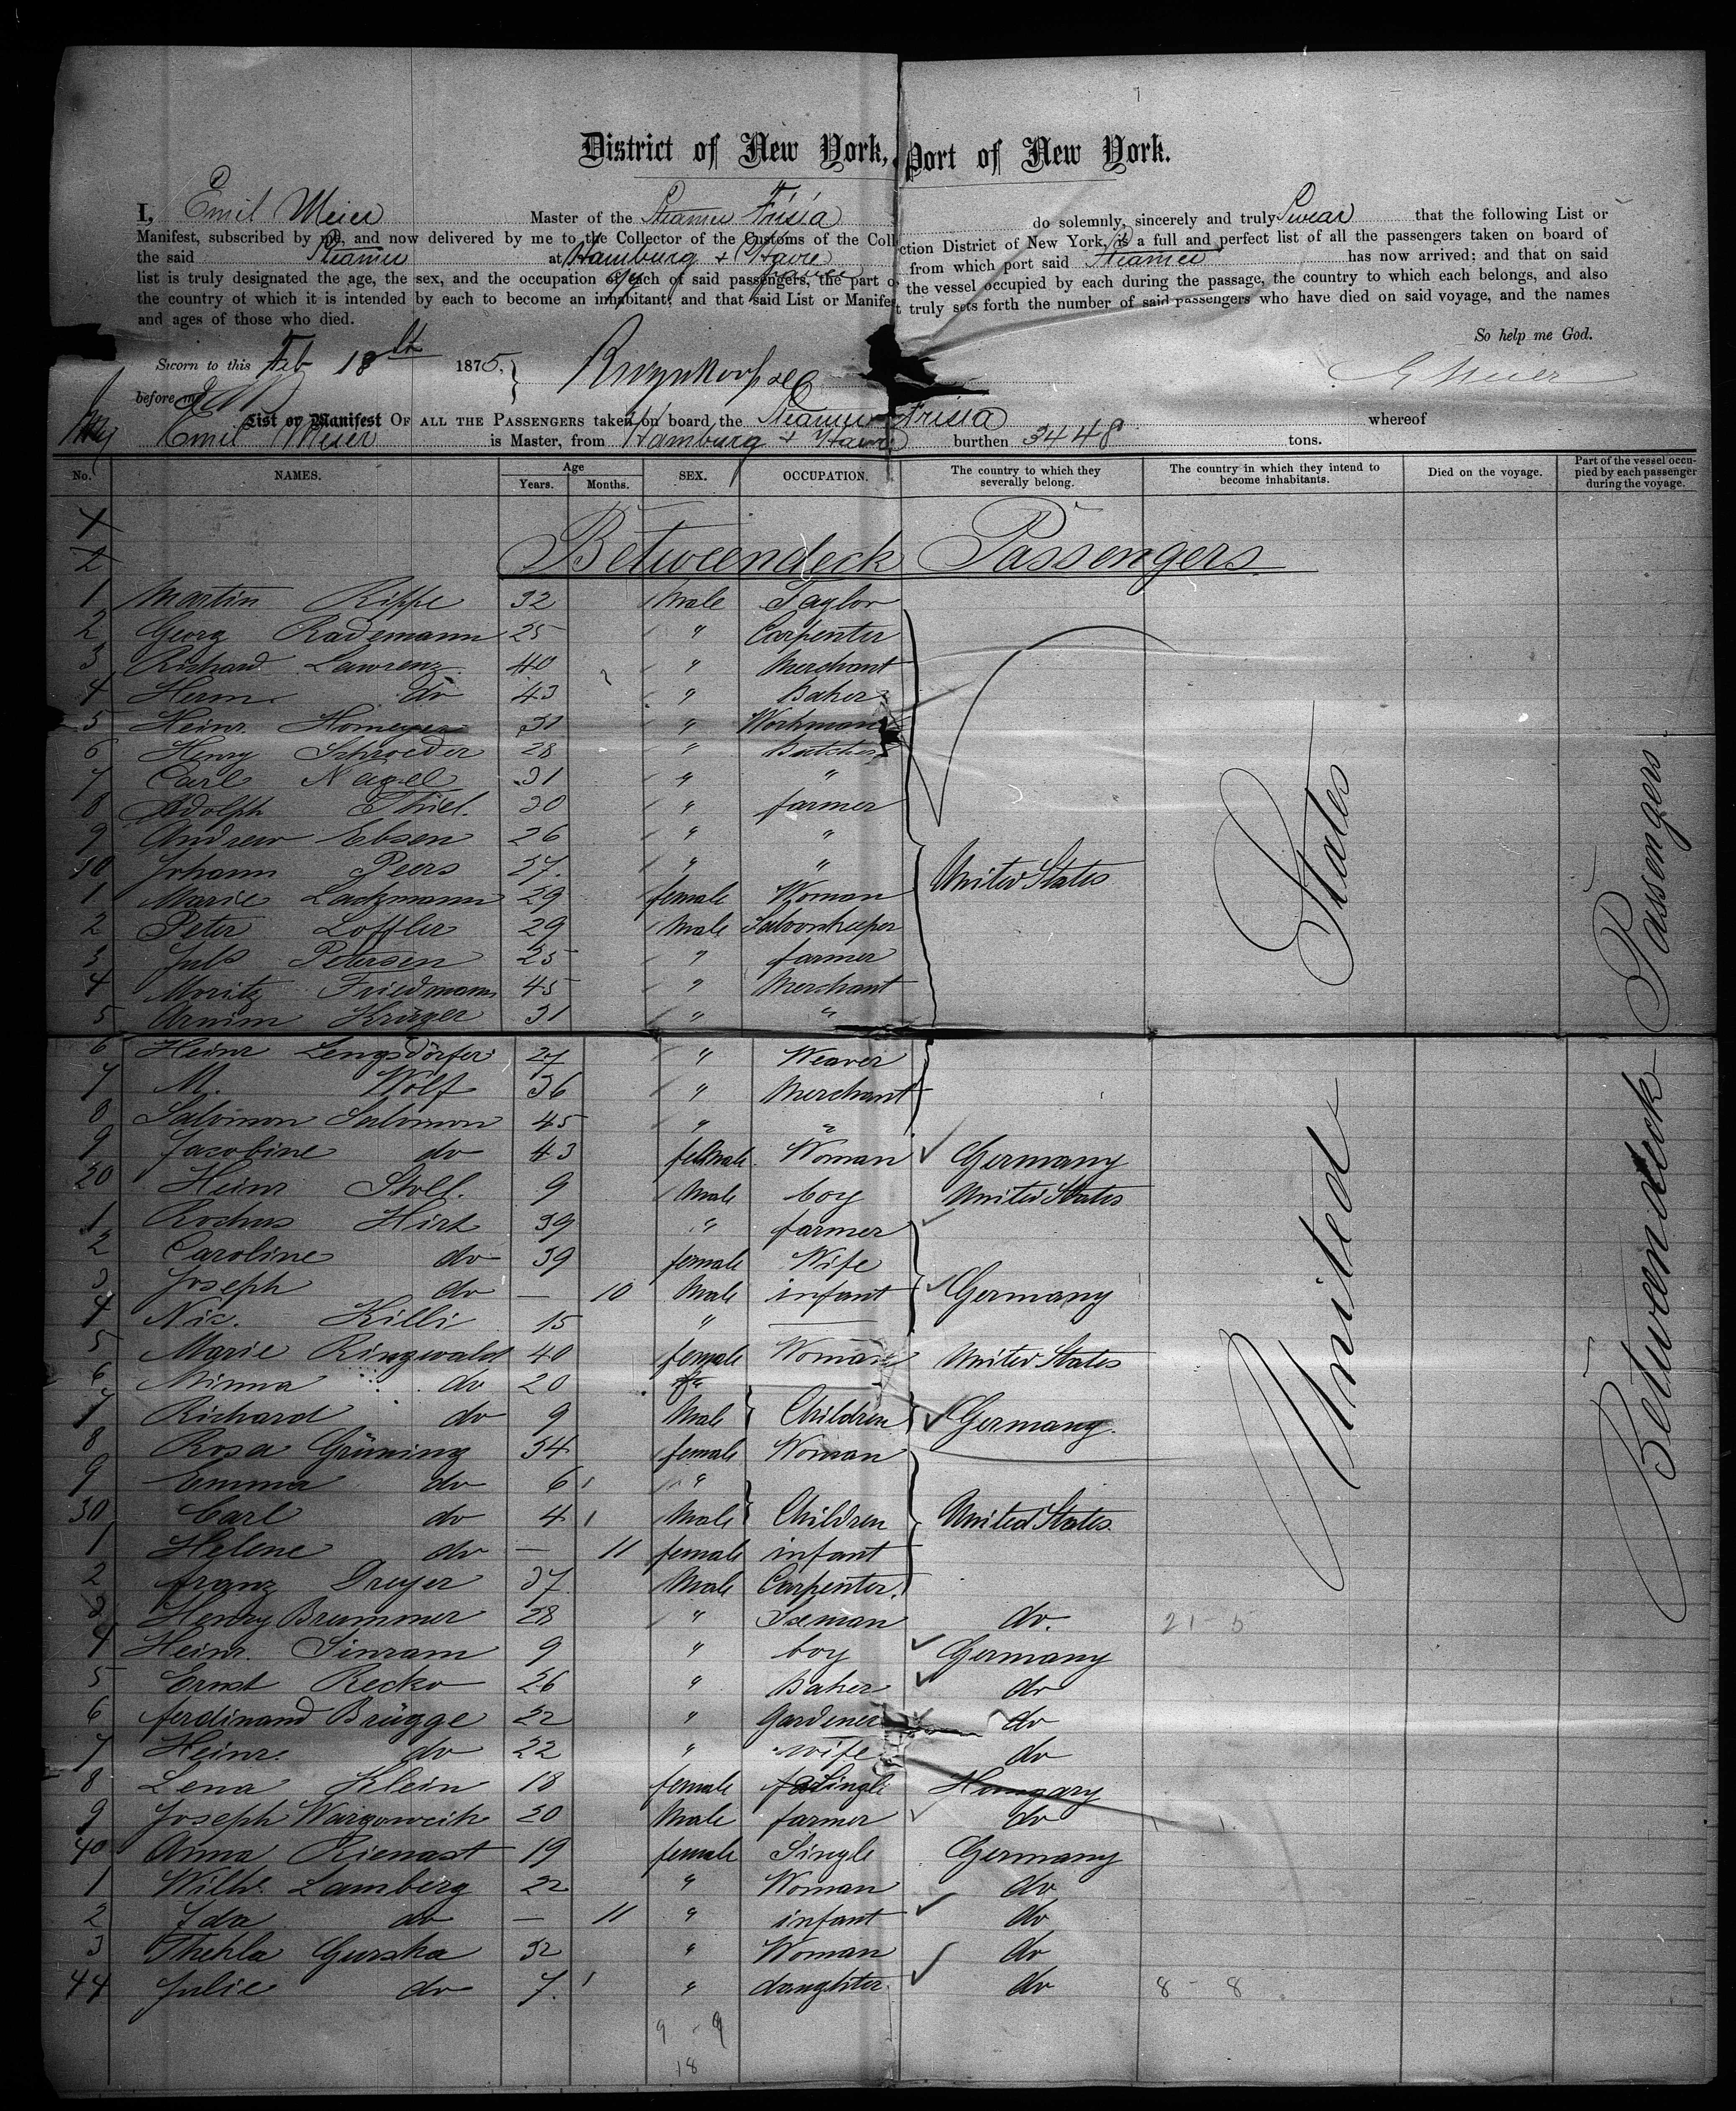 District of New York, Port of New York.
I, Emil Meier Master of the Steamer Frisia do solemnly, sincerely and truly Swear that the following List or
Manifest, subscribed by me, and now delivered by me to the Collector of the Customs of the Collection District of New York, is a full and perfect list of all the passengers taken on board of
the said Steamer at Hamburg + Havre from which port said Steamer has now arrived; and that on said
list is truly designated the age, the sex, and the occupation of each of said passengers, the part of the vessel occupied by each during the passage, the country to which each belongs, and also
the country of which it is intended by each to become an inhabitant; and that said List or Manifest truly sets forth the number of said passengers who have died on said voyage, and the names
and ages of those who died.
So help me God.
Sworn to this Feb 18th 1875,
E Meier
before me
List or Manifest OF ALL THE PASSENGERS taken on board the Steamer Frisia whereof
Emil Meier is Master, from Hamburg + Havre burthen 3448 tons.
No. NAMES. Age Years. Months. SEX. OCCUPATION. The country to which they severally belong. The country in which they intend to become inhabitants. Died on the voyage. Part of the vessel occupied by each passenger during the voyage.
1
2 Betweendeck Passengers
1 Martin Rippe 32 Male Taylor
2 Georg Rademann 25 " Carpenter
3 Richard Lawrenz 40 " Merchant
4 Herm. do 43 " Baker
5 Heinr. Homeyer 31 " Workman
6 Henry Schroeder 28 " Butcher
7 Carl Nagel 31 " "
8 Adolph Thiel. 30 " farmer
9 Andrew Ebsen 26 " "
10 Johann Peers 27. " "
United States
1 Marie Lackmann 29 female Woman
2 Peter Loffler 29 Male Saloonkeeper
3 Juls Petersen 25 " farmer
4 Moritz Friedmann 45 " Merchant
5 Arnim Krüger 31 " "
6 Heinr Lengsdörfer 27 " Weaver
7 M. Wolf 36 " Merchant
8 Salomon Salomon 45 " "
9 Jacobine do 43 female Woman Germany
20 Heinr Stoll. 9 Male boy United States
1 Rochus Hirt 39 " farmer
2 Caroline do 39 female Wife
3 Joseph do — 10 Male infant Germany
4 Nic. Killi 15 " —
5 Marie Ringwald 40 female Woman United States
6 Minna do 20 "
7 Richard do 9 Male Children Germany.
8 Rosa Grüning 34 female Woman
9 Emma do 6 "
30 Carl do 4 Male Children United States.
1 Helene do — 11 female infant
2 Franz Dreyer 37 Male Carpenter.
3 Henry Brummer 28 " Iceman do. 21 - 5
4 Heinr. Sinram 9 " boy Germany
5 Ernst Recko 26 " Baker do
6 Ferdinand Brügge 22 " Gardener do
7 Heinr. do 22 " wife do
8 Lena Klein 18 female Single Hungary
9 Joseph Wargoweik 20 Male farmer do
40 Anna Rienast 19 female Single Germany
1 Wilh. Lamberg 22 " Woman do
2 Ida do — 11 " infant do
3 Thekla Gurska 32 " Woman do
44 Julie do 7. " daughter. do 8 - 8
9 - 9
18
United States
Betweendeck Passengers